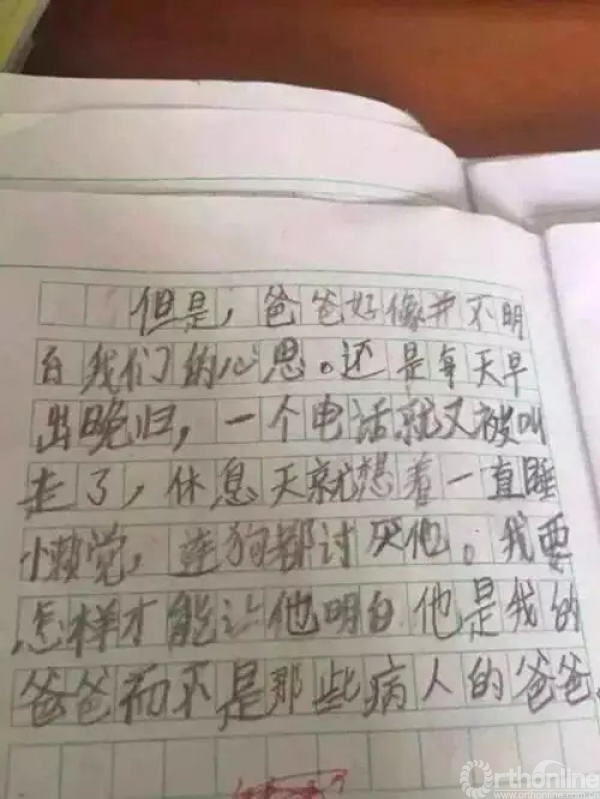 但是，爸爸好像并不明
白我们的心思。还是每天早
出晚归，一个电话就又被叫
走了，休息天就想着一直睡
懒觉，连狗都讨厌他。我要
怎样才能让他明白他是我的
爸爸而不是那些病人的爸爸。
Orthonline
www.orthonline.com.cn